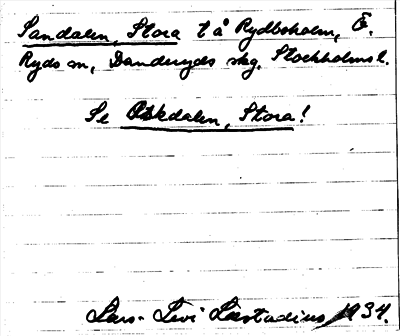 Sandalen, Stora t å Rydboholm, Ö.
Ryds sn, Danderyds skg. Stockholms l.
Se Askdalen, Stora!
Lars-Levi Læstadius 1934.